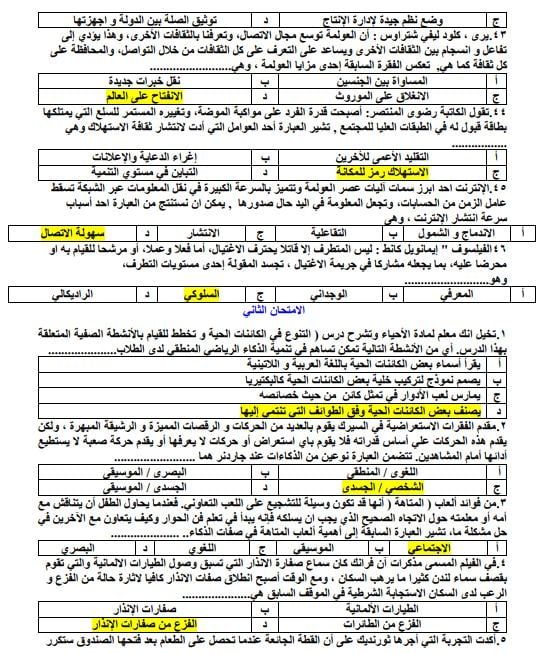 ج وضع نظم جيدة لإدارة الإنتاج د توثيق الصلة بين الدولة و اجهزتها
٤٣.يرى ، كلود ليفي شتراوس : أن العولمة توسع مجال الاتصال، وتعرفنا بالثقافات الأخرى، وهذا يؤدي إلى
تفاعل و انسجام بين الثقافات الأخرى ويساعد على التعرف على كل الثقافات من خلال التواصل، والمحافظة على
كل ثقافة كما هي, تعكس الفقرة السابقة إحدى مزايا العولمة ، وهي....................
أ المساواة بين الجنسين ب نقل خبرات جديدة
ج الانغلاق على الموروث د الانفتاح على العالم
٤٤.تقول الكاتبة رضوى المنتصر: أصبحت قدرة الفرد على مواكبة الموضة، وتغييره المستمر للسلع التي يمتلكها
بطاقة قبول له في الطبقات العليا للمجتمع , تشير العبارة أحد العوامل التي أدت لانتشار ثقافة الاستهلاك وهي
.................
أ التقليد الأعمى للآخرين ب إغراء الدعاية والإعلانات
ج الاستهلاك رمز للمكانة د التباين في مستوي التنمية
٤٥.الإنترنت احد ابرز سمات آليات عصر العولمة وتتميز بالسرعة الكبيرة في نقل المعلومات عبر الشبكة تسقط
عامل الزمن من الحسابات، وتجعل المعلومة في اليد حال صدورها , يمكن ان نستنتج من العبارة احد أسباب
سرعة انتشار الإنترنت ، وهي
أ الاندماج و الشمول ب التفاعلية ج الانتشار د سهولة الاتصال
٤٦.الفيلسوف " إيمانويل كانط : ليس المتطرف إلا قاتلا يحترف الاغتيال، أما فعلا وعملا، أو مرشحا للقيام به او
محرضا عليه، بما يجعله مشاركا في جريمة الاغتيال ، تجسد المقولة إحدى مستويات التطرف،
وهو........................
أ المعرفي ب الوجداني ج السلوكي د الراديكالي
الامتحان الثاني
١.تخيل انك معلم لمادة الأحياء وتشرح درس ( التنوع في الكائنات الحية و تخطط للقيام بالأنشطة الصفية المتعلقة
بهذا الدرس. أي من الأنشطة التالية تمكن تساهم في تنمية الذكاء الرياضي المنطقي لدى الطلاب....................
أ يقرأ أسماء بعض الكائنات الحية باللغة العربية و اللاتينية
ب يصمم نموذج لتركيب خلية بعض الكائنات الحية كالبكتيريا
ج يمارس لعب الأدوار في تمثل كائن من حيث خصائصه
د يصنف بعض الكائنات الحية وفق الطوائف التي تنتمي إليها
٢.مقدم الفقرات الاستعراضية في السيرك يقوم بالعديد من الحركات و الرقصات المميزة و الرشيقة المبهرة ، ولكن
يقدم هذه الحركات علي أساس قدراته فلا يقوم باي استعراض أو حركات لا يعرفها أو يقدم حركة صعبة لا يستطيع
أدائها أمام المشاهدين. تتضمن العبارة نوعين من الذكاءات عند جاردنر هما ....................
أ اللغوى / المنطقى ب البصرى / الموسيقى
ج الشخصي / الجسدى د الجسدى / الموسيقى
٣.من فوائد ألعاب ( المتاهة ) أنها قد تكون وسيلة للتشجيع على اللعب التعاوني. فعندما يحاول الطفل أن يتناقش مع
أمه أو معلمته حول الاتجاه الصحيح الذي يجب ان يسلكه فإنه يبدأ في تعلم فن الحوار وكيف يتعاون مع الآخرين في
حل مشكلة ما، تشير العبارة السابقة إلى أهمية ألعاب المتاهة في صفات الذكاء.. ....................
أ الاجتماعي ب الموسيقي ج اللغوي د البصري
٤.في الفيلم المسمى مذكرات آن فرانك كان سماع صفارة الانذار التي تسبق وصول الطيارات الالمانية والتي تقوم
بقصف سماء لندن كثيرا ما يرهب السكان ، ومع الوقت أصبح انطلاق صفات الانذار كافيا لاثارة حالة من الفزع و
الرعب لدى السكان الاستجابة الشرطية في الموقف السابق هي....................
أ الطيارات الألمانية ب صفارات الإنذار
ج الفزع من الطائرات د الفزع من صفارات الإنذار
٥.أكدت التجربة التي أجرها ثورنديك على أن القطة الجائعة عندما تحصل على الطعام بعد فتحها الصندوق ستكرر